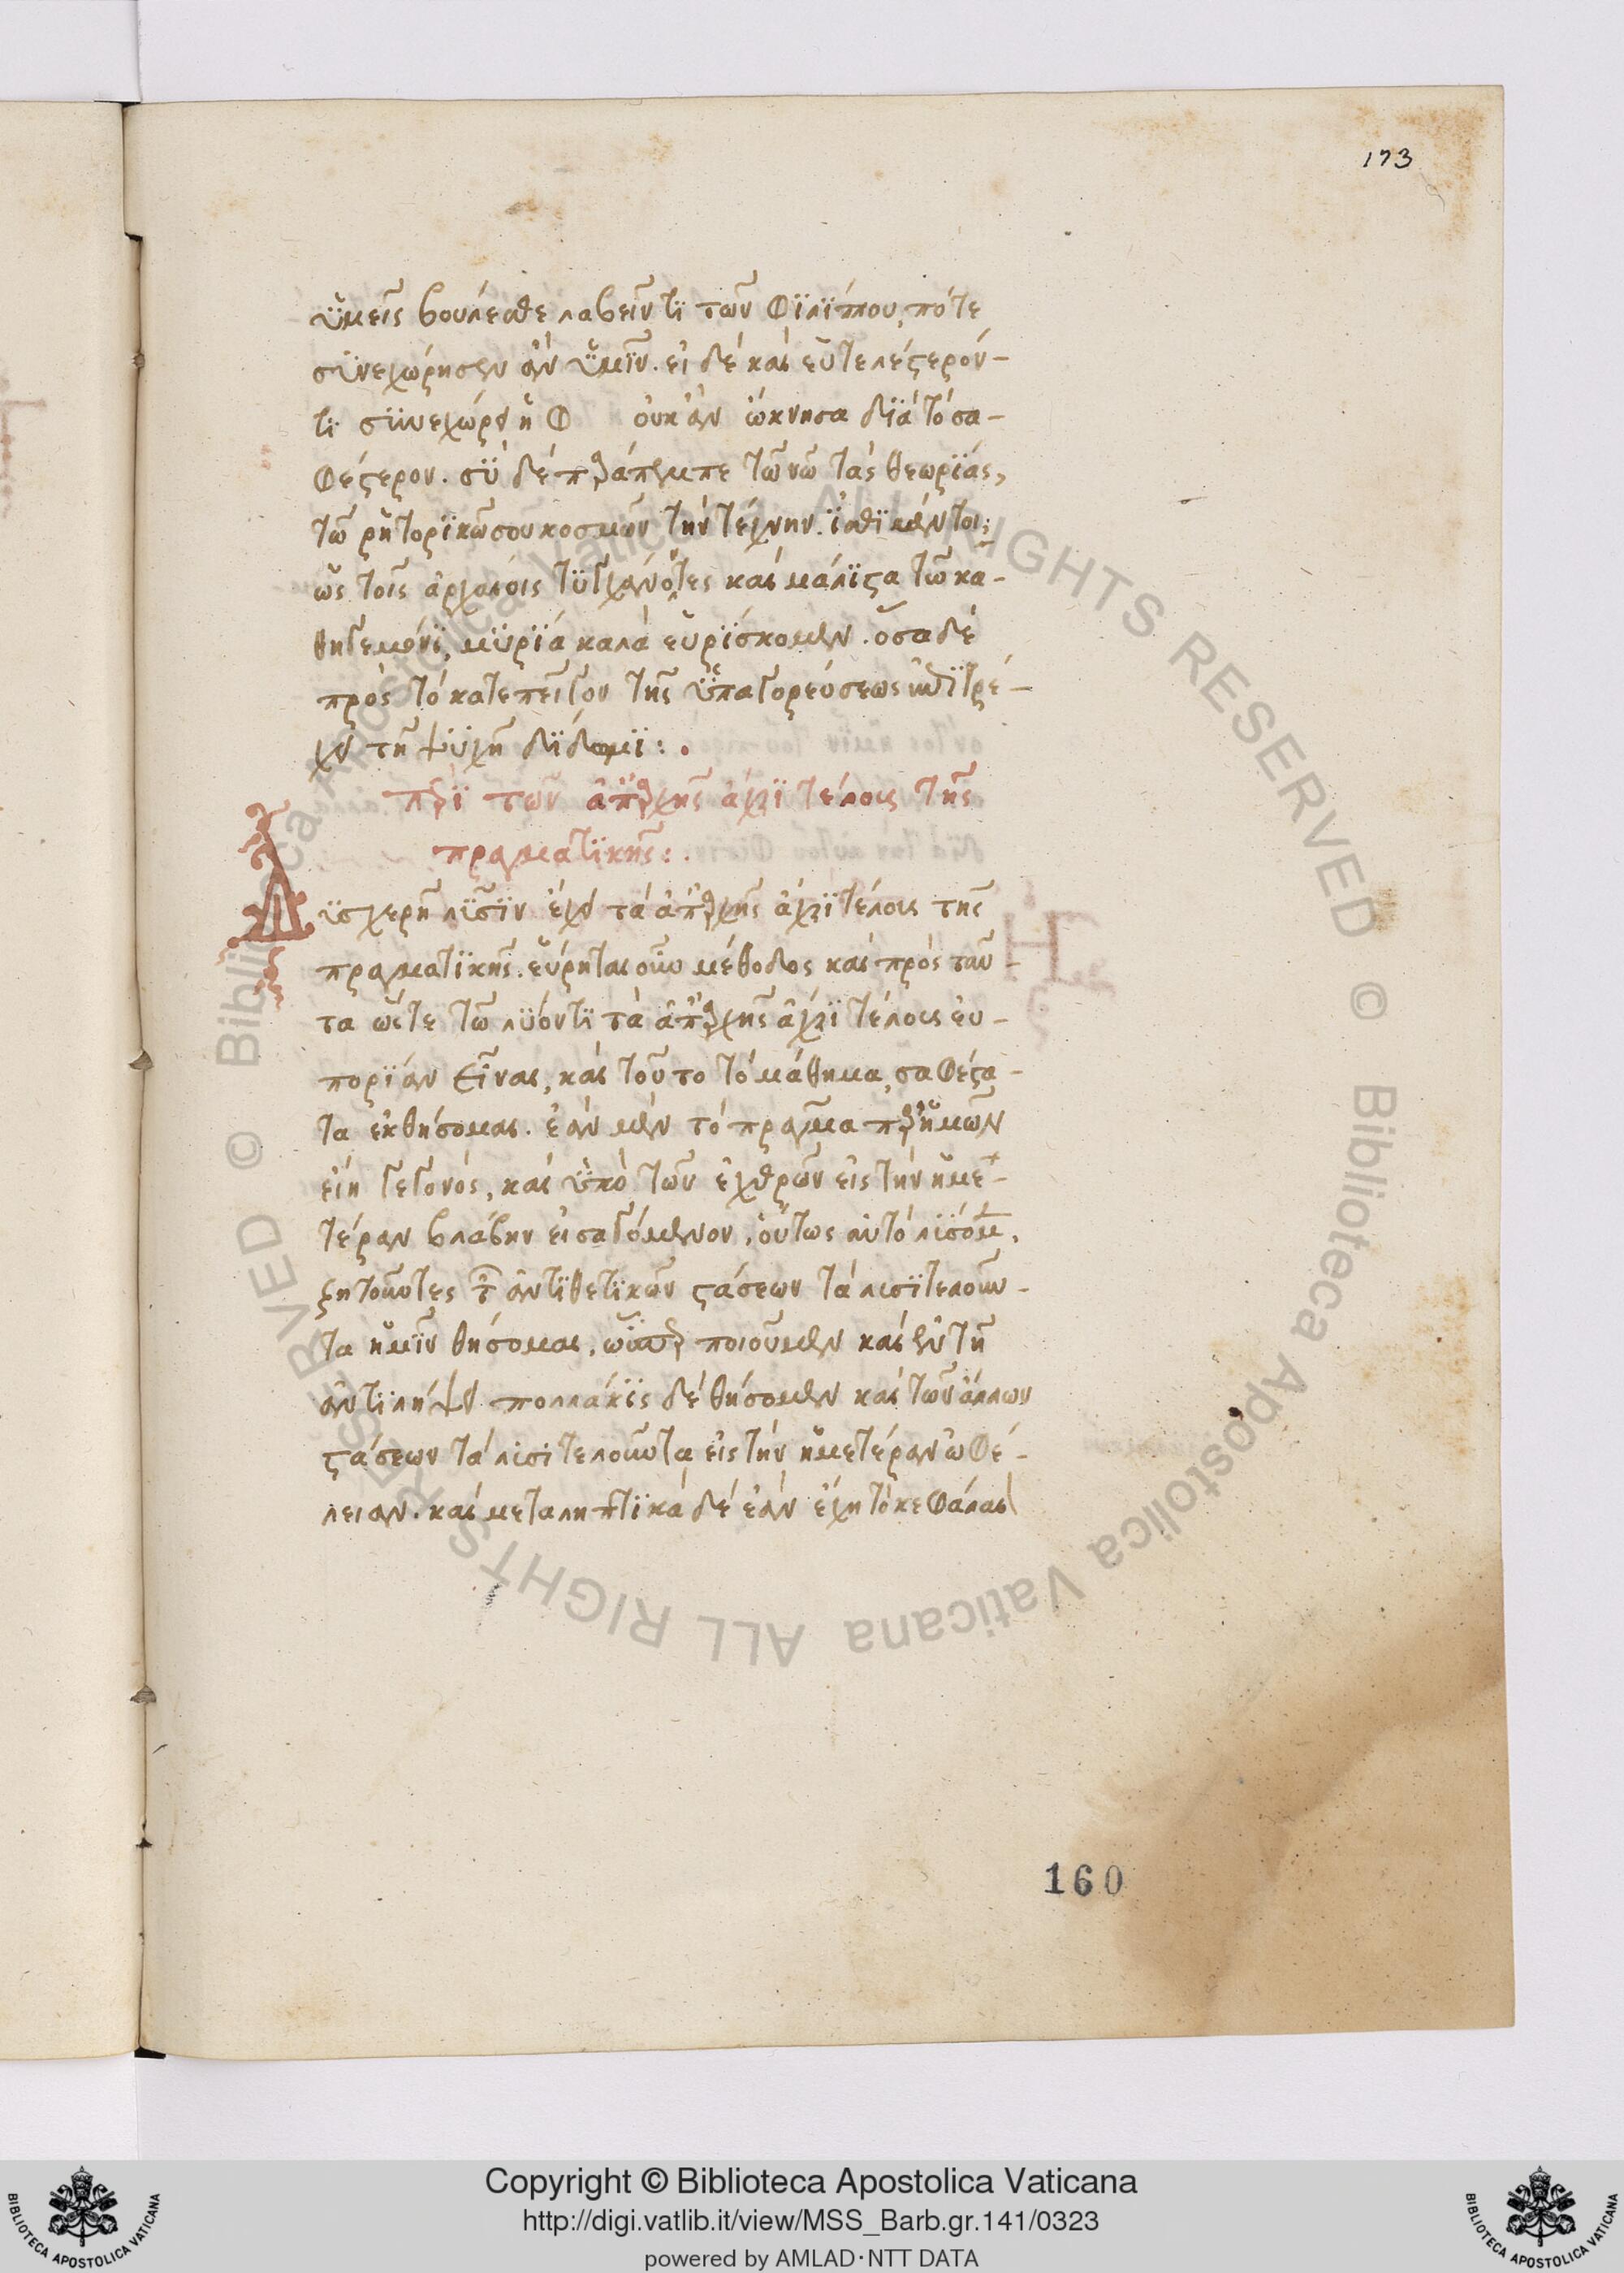 173
ὑμεῖς βούλεσθε λαβεῖν τι τῶν Φιλίππου, πότε
συνεχώρησεν ἂν ὑμῖν. εἰ δὲ καὶ εὐτελέστερόν-
τι συνεχώρει ἡ Φ οὐκ ἂν ὤκνησα διὰ τὸ σα-
φέστερον. σὺ δὲ παράπεμπε τῶ νῶ τὰς θεωρίας,
τῶ ῥητορικῶ σου κοσμῶν τὴν τέχνην. ἴσθι μέντοι;
ὡς τοῖς ἀρχαίοις καὶ μάλιστα τῶ κα-
θηγεμόνι, μυρία καλὰ εὑρίσκομεν. ὅσα δὲ
πρὸς τὸ κατεπεῖγον τῆς ὑπαγορεύσεως ἐπιτρέ-
χει τῆ ψυχῆ δίδωμι:.
περὶ τῶν ἀπαρχῆς ἄχρι τέλους τῆς
πραγματικῆς:.
Δυσχερῆ λύσιν ἔχει τὰ ἀπαρχῆς ἄχρι τέλους τῆς
πραγματικῆς. εὕρηται οὖν μέθοδος καὶ πρὸς ταῦ-
τα ὥστε τῶ λύοντι τὰ ἀπαρχῆς ἄχρι τέλους εὐ-
πορίαν εἶναι, καὶ τοῦτο τὸ μάθημα, σαφέστα-
τα ἐκθήσομαι. ἐὰν μὲν τὸ πρᾶγμα παρ' ἡμῶν
εἴη γεγονός, καὶ ὑπὸ τῶν ἐχθρῶν εἰς τὴν ἡμε-
τέραν βλάβην εἰσαγόμενον, οὕτως αὐτὸ λύσομεν,
ζητοῦντες τῶν ἀντιθετικῶν στάσεων τὰ λυσιτελοῦν-
τα ἡμῖν θήσομαι, ὥσπερ ποιοῦμεν καὶ ἐν τῆ
ἀντιλήψει πολλάκις δὲ θήσομεν καὶ τῶν ἄλλων
στάσεων τὰ λυσιτελοῦντα εἰς τὴν ἡμετέραν ὠφέ-
λειαν. καὶ μεταληπτικὰ δὲ ἐὰν ἔχη τὸ κεφάλαι
160
Copyright © Biblioteca Apostolica Vaticana
http://digi.vatlib.it/view/MSS_Barb.gr.141/0323
powered by AMLAD·NTT DATA
BIBLIOTECA APOSTOLICA VATICANA
BIBLIOTECA APOSTOLICA VATICANA
© Biblioteca Apostolica Vaticana ALL RIGHTS RESERVED
© Biblioteca Apostolica Vaticana ALL RIGHTS RESERVED